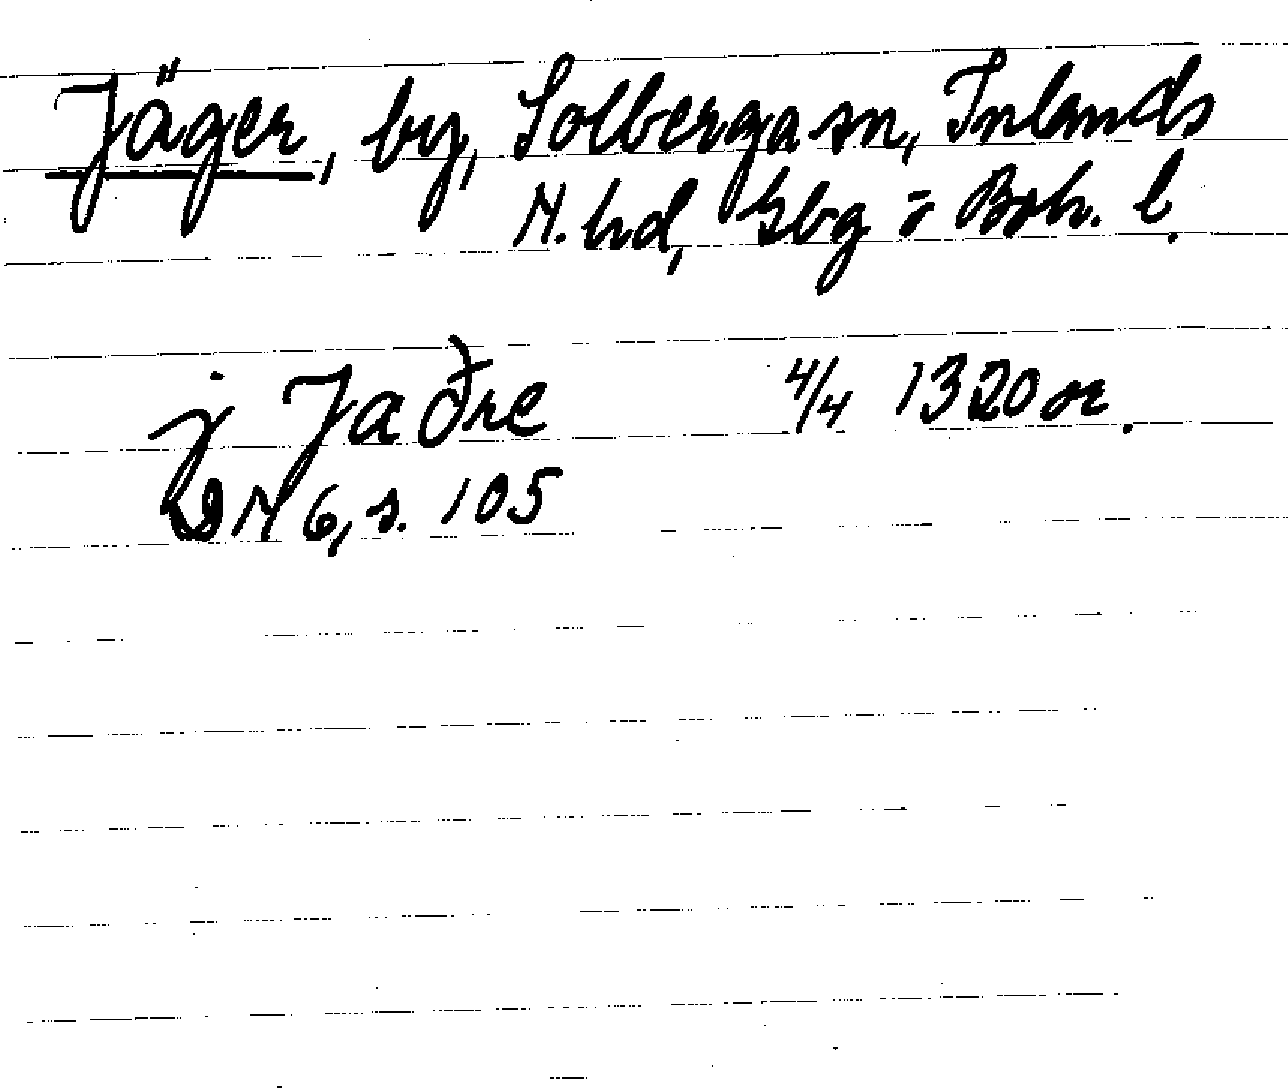 Jäger, by, Solberga sn, Inlands
N. hd, Gbg o Boh. l.
j Jaðre 4/4 1320 or.
DN 6, s. 105